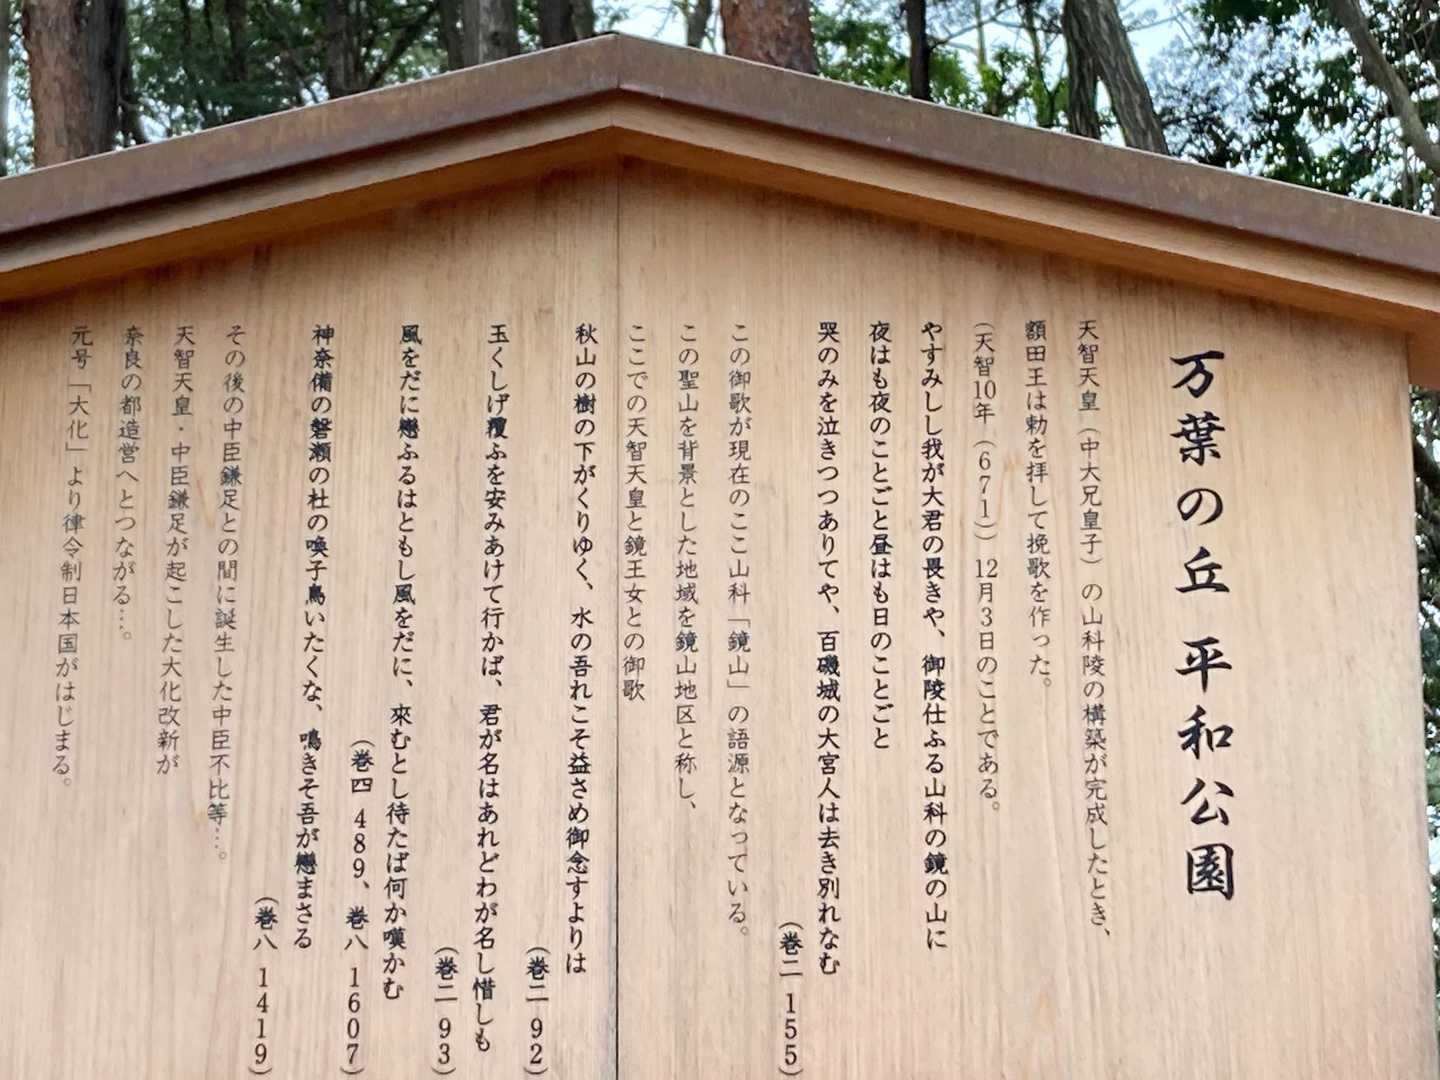 万葉の丘 平和公園
天智天皇（中大兄皇子）の山科陵の構築が完成したとき、
額田王は勅を拝して挽歌を作った。
（天智10年（671）12月3日のことである。
やすみしし我が大君の畏きや、御陵仕ふる山科の鏡の山に
夜はも夜のことごと昼はも日のことごと
哭のみを泣きつつありてや、百磯城の大宮人は去き別れなむ
（巻二 155）
この御歌が現在のここ山科「鏡山」の語源となっている。
この聖山を背景とした地域を鏡山地区と称し、
ここでの天智天皇と鏡王女との御歌
秋山の樹の下がくりゆく、水の吾れこそ益さめ御念すよりは
（巻二 92）
玉くしげ覆ふを安みあけて行かば、君が名はあれどわが名し惜しも
（巻二 93）
風をだに戀ふるはともし風をだに、來むとし待たば何か嘆かむ
（巻四 489、巻八 1607）
神奈備の磐瀬の杜の喚子鳥いたくな、鳴きそ吾が戀まさる
（巻八 1419）
その後の中臣鎌足との間に誕生した中臣不比等…。
天智天皇・中臣鎌足が起こした大化改新が
奈良の都造営へとつながる…。
元号「大化」より律令制日本国がはじまる。